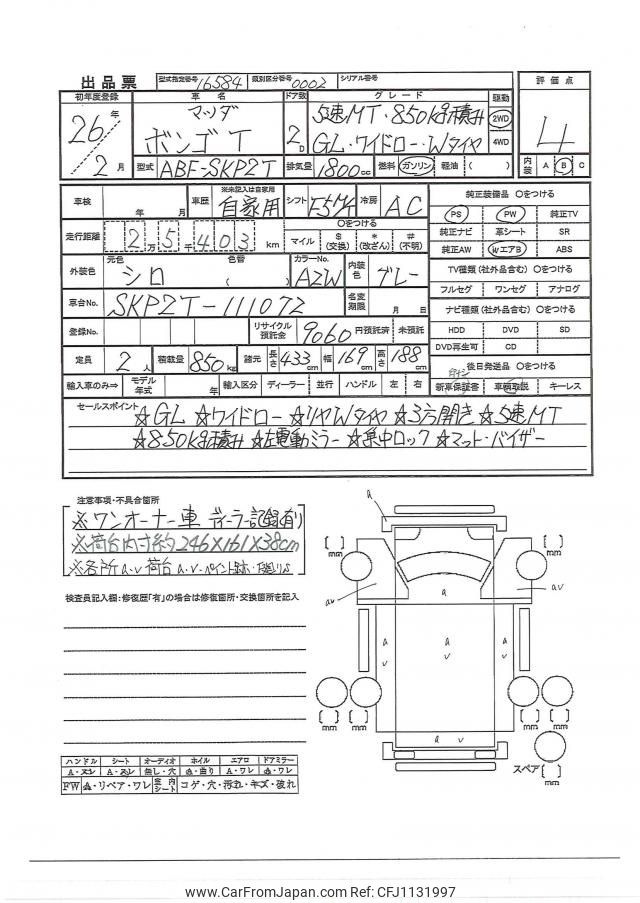 出品票 型式指定番号 16584 類別区分番号 0002 シリアル番号
評価点
初年度登録 車名 ドア数 グレード 駆動
26年 マツダ 5速MT・850kg積み 2WD
2月 ボンゴT 2D GL・ワイドロー・Wタイヤ 4WD
4
型式 ABF-SKP2T 排気量 1800cc 燃料 ガソリン 軽油 ( )
内装 A B C
車検 年 月 車歴 ※未記入は自家用 自家用 シフト F5MT 冷房 AC
純正装備品 〇をつける
PS PW 純正TV
走行距離 2万5千403km 〇をつける
マイル $(交換) *(改ざん) #(不明)
純正ナビ 革シート SR
純正AW WエアB ABS
外装色 元色 シロ 色替 ( ) カラーNo. A2W 内装色 グレー
TV種類(社外品含む) 〇をつける
フルセグ ワンセグ アナログ
車台No. SKP2T-111072 名変期限 月 日
ナビ種類(社外品含む) 〇をつける
登録No. リサイクル預託金 9060円預託済 未預託
HDD DVD SD
DVD再生可 CD
定員 2人 積載量 850kg 諸元 長さ 433cm 幅 169cm 高さ 188cm
後日発送品 〇をつける
輸入車のみ⇒ モデル年式 年 輸入区分 ディーラー 並行 ハンドル 左 右
新車保証書 車輌取説 キーレス
セールスポイント
☆GL ☆ワイドロー ☆リヤWタイヤ ☆3方開き ☆5速MT
☆850kg積み ☆左電動ミラー ☆集中ロック ☆マット・バイザー
注意事項・不具合箇所
※ワンオーナー車 ディーラー記録有り
※荷台内寸約246×161×38cm
※各所a.v荷台a.v.ペイント跡・
検査員記入欄:修復歴「有」の場合は修復箇所・交換箇所を記入
a
[ ] mm
[ ] mm
av
a v
a v
a v
a v
a v
[ ] mm
[ ] mm
[ ] mm
[ ] mm
スペア [ ] mm
ハンドル シート オーディオ ホイル エアロ ドアミラー
A・スレ A・スレ 無し・穴 a・曲り A・ワレ a・ワレ
FW a・リペア・ワレ 室内シート コゲ・穴・汚れ・キズ・破れ
www.CarFromJapan.com Ref: CFJ1131997